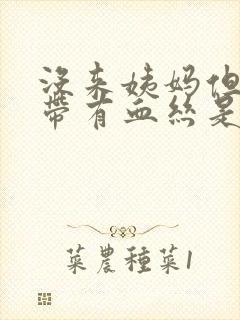 没来姨妈但
带有血丝是
菜農種菜1